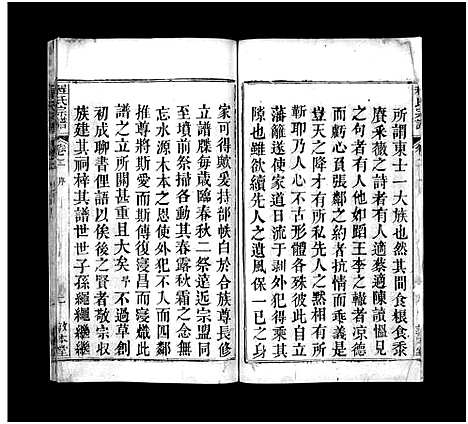 所謂東士一大族也然其間食粮食黍
賡采薇之詩者有人適蔡適陳讀慍見
之句者有人他如蹈王李之轍者凉德
而虧心頁張鄰之約者抗情而乖義是
豈天之降才有所私先人之黙相有所
靳耶乃人心不古形體各殊彼此自立
藩籬送使家道日流于剥外犯得乘其
隙也雖欲續先人之遺風保一已之身
家可得歟爰持部帙白於合族尊長修
立譜牒每歲臨春秋二祭遠近宗盟同
至墳前祭掃各動其春露秋霜之念無
忘水源木本之恩使外犯不而四鄰
推尊將斯愛而斯傳復寖昌而寖熾此
譜之立所關甚重且大矣不過草創
初成聊書俚語以俟後之賢者敬宗收
族建其祠梓其譜世世子孫繩繩繼繼
程氏宗譜
卷二
序
敦本堂